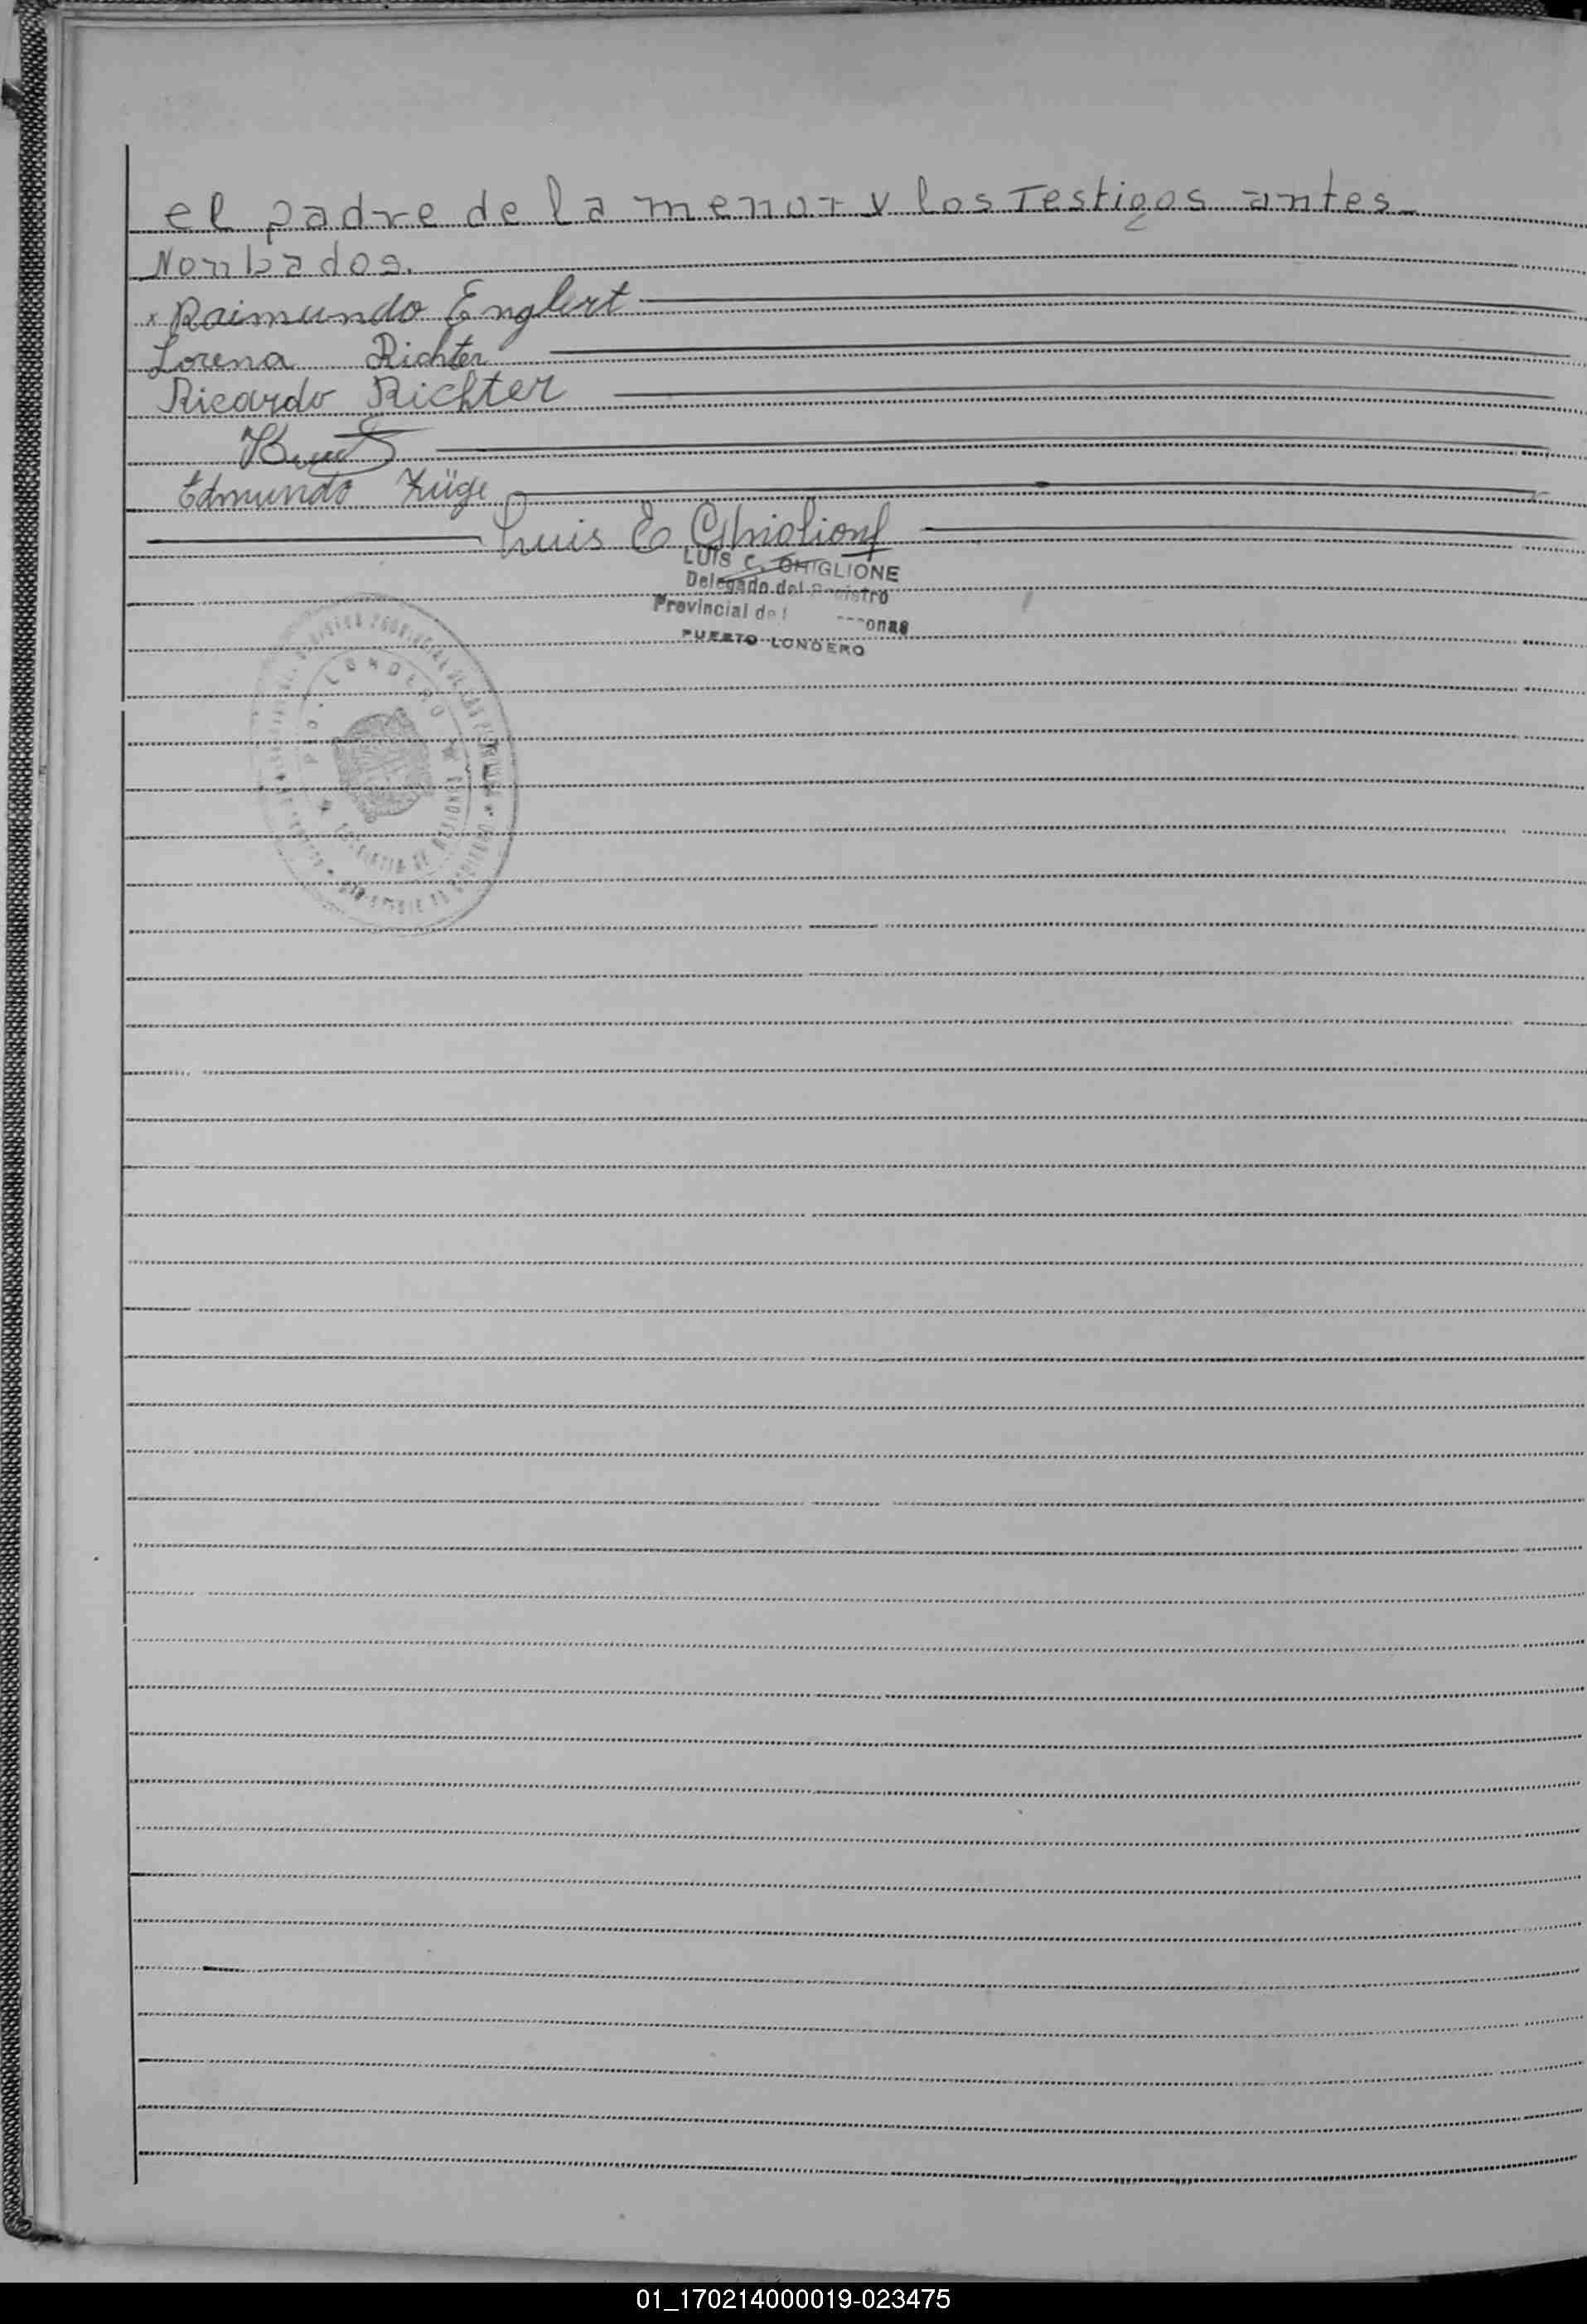 el padre de la menor y los Testigos antes
Nombados.
x Raimundo Englert
Lorena Richter
Ricardo Richter
Edmundo Züge
Luis C Ghiglione
LUIS C. GHIGLIONE
Delegado del Registro
Provincial de
PUERTO LONDERO
PTO. LONDERO
01_170214000019-023475